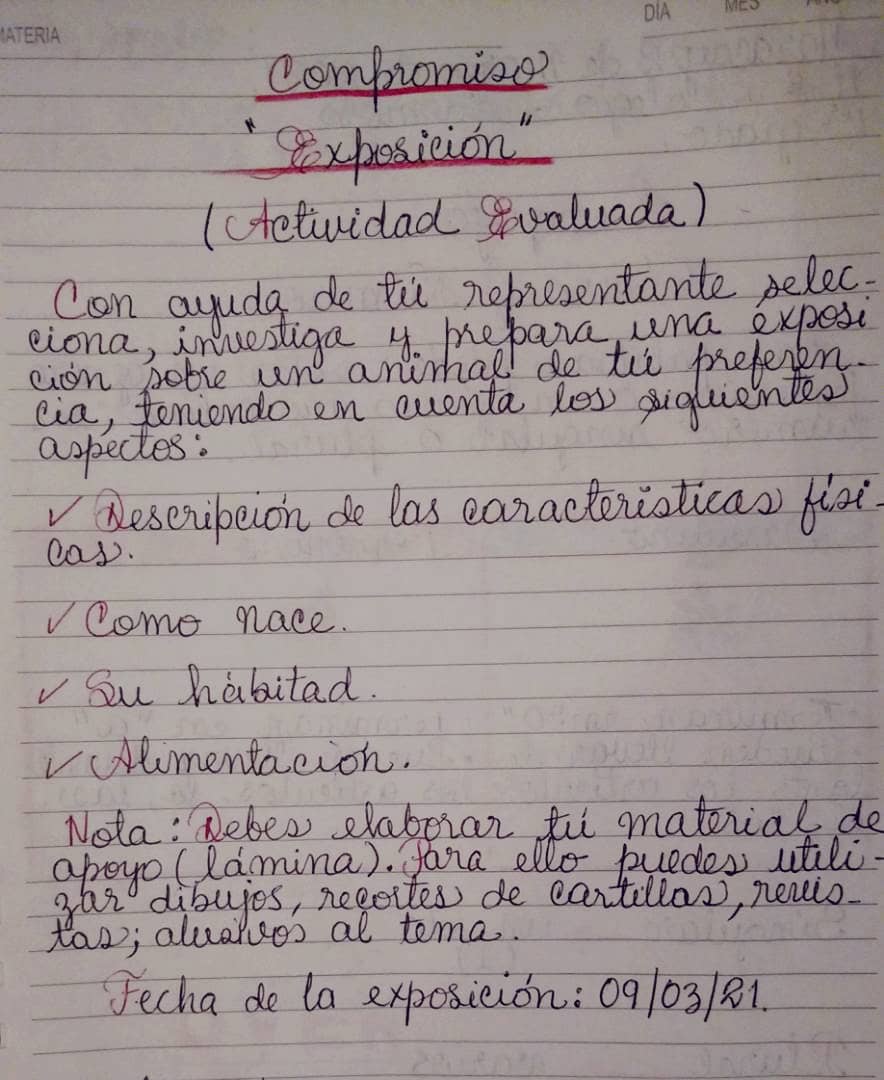 MATERIA
DIA MES
Compromiso
"Exposición"
(Actividad Evaluada)
Con ayuda de tú representante selec-
ciona, investiga y prepara una exposi
ción sobre un animal de tú preferen-
cia, teniendo en cuenta los siguientes
aspectos:
✓ Descripción de las caracteristicas físi-
cas.
✓ Como nace.
✓ Su hábitad.
✓ Alimentación.
Nota: Debes elaborar tú material de
apoyo (lámina). Para ello puedes utili-
zar dibujos, recortes de cartillas, revis-
tas; alusivos al tema.
Fecha de la exposición: 09/03/21.